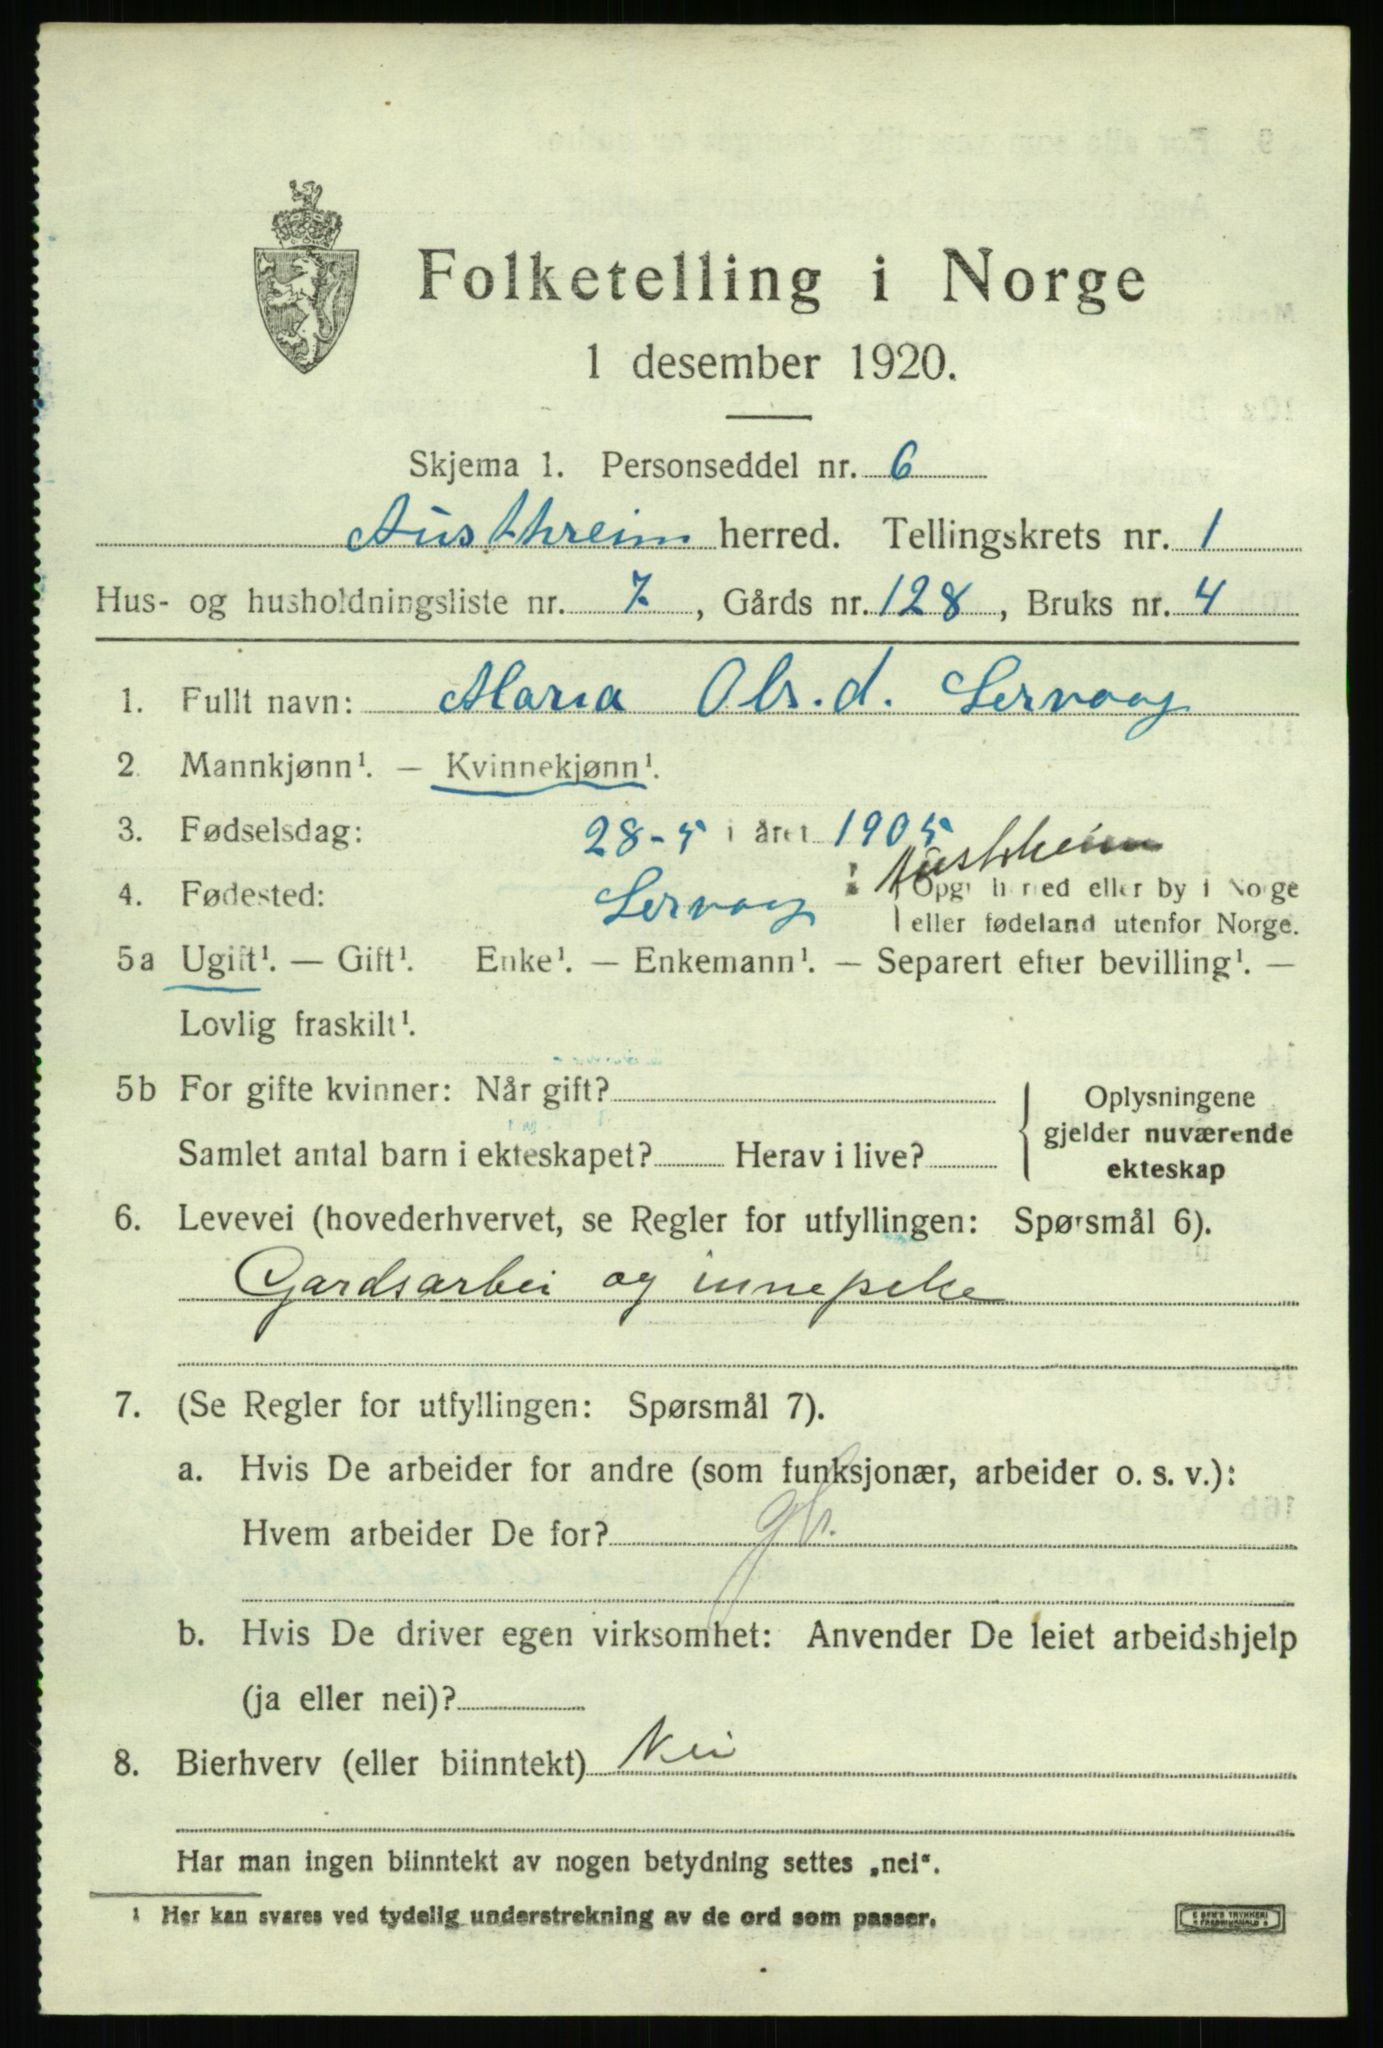 Folketelling i Norge
1 desember 1920.
Skjema 1. Personseddel nr. 6
Austrheim herred. Tellingskrets nr. 1
Hus- og husholdningsliste nr. 7, Gårds nr. 128, Bruks nr. 4
1. Fullt navn: Maria Ols.d. Servaag
2. Mannkjønn¹. — Kvinnekjønn¹.
3. Fødselsdag: 28-5 i året 1905
Austrheim
4. Fødested: Servaag { Opgi herred eller by i Norge
eller fødeland utenfor Norge.
5a Ugift¹. — Gift¹. Enke¹. — Enkemann¹. — Separert efter bevilling¹. —
Lovlig fraskilt¹.
5b For gifte kvinner: Når gift? { Oplysningene
gjelder nuværende
Samlet antal barn i ekteskapet? Herav i live?
ekteskap
6. Levevei (hovederhvervet, se Regler for utfyllingen: Spørsmål 6).
Gardsarbei og innepike
7. (Se Regler for utfyllingen: Spørsmål 7).
a. Hvis De arbeider for andre (som funksjonær, arbeider o. s. v.):
Hvem arbeider De for?
b. Hvis De driver egen virksomhet: Anvender De leiet arbeidshjelp
(ja eller nei)?
8. Bierhverv (eller biinntekt) Nei
Har man ingen biinntekt av nogen betydning settes „nei“.
¹ Her kan svares ved tydelig understrekning av de ord som passer.